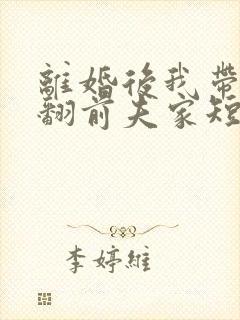 離婚後我帶
翻前夫家短
李婷維